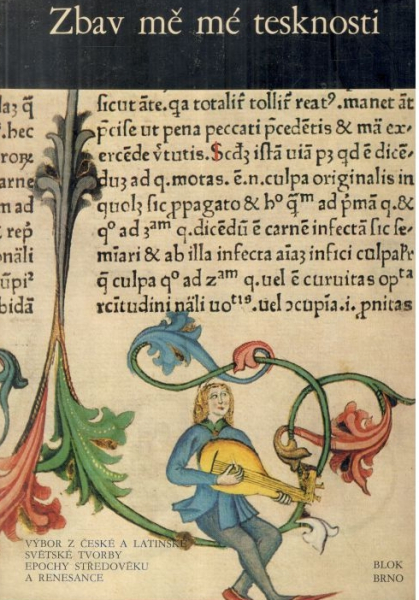 Zbav mě mé tesknosti
sicut āte. qa totalir̃ tollir̃ reatꝰ. manet āt
.hec p̄cise ut pena peccati p̄cedētis & mā ex
ercēde v̄tutis. Scd̄ꝫ istā uiā pꝫ qd ē dicē
arne duꝫ ad q. motas. ē.n. culpa originalis in
m ad quolꝫ sic ꝓpagato & hº q̃ᵐ ad p̄mā q. &
qº ad ꝫᵃᵐ q. dicēdū ē carnē infectā sic se
mīari & ab illa infecta aīaꝫ infici culpa
q̄ culpa qº ad zᵃᵐ q. uel ē curuitas opᵗᵃ
bidā rc̄itudini nāli uoᵗⁱˢ. uel ɔcupīa .i. ꝓnitas
VÝBOR Z ČESKÉ A LATINSKÉ
SVĚTSKÉ TVORBY
EPOCHY STŘEDOVĚKU
A RENESANCE
BLOK
BRNO